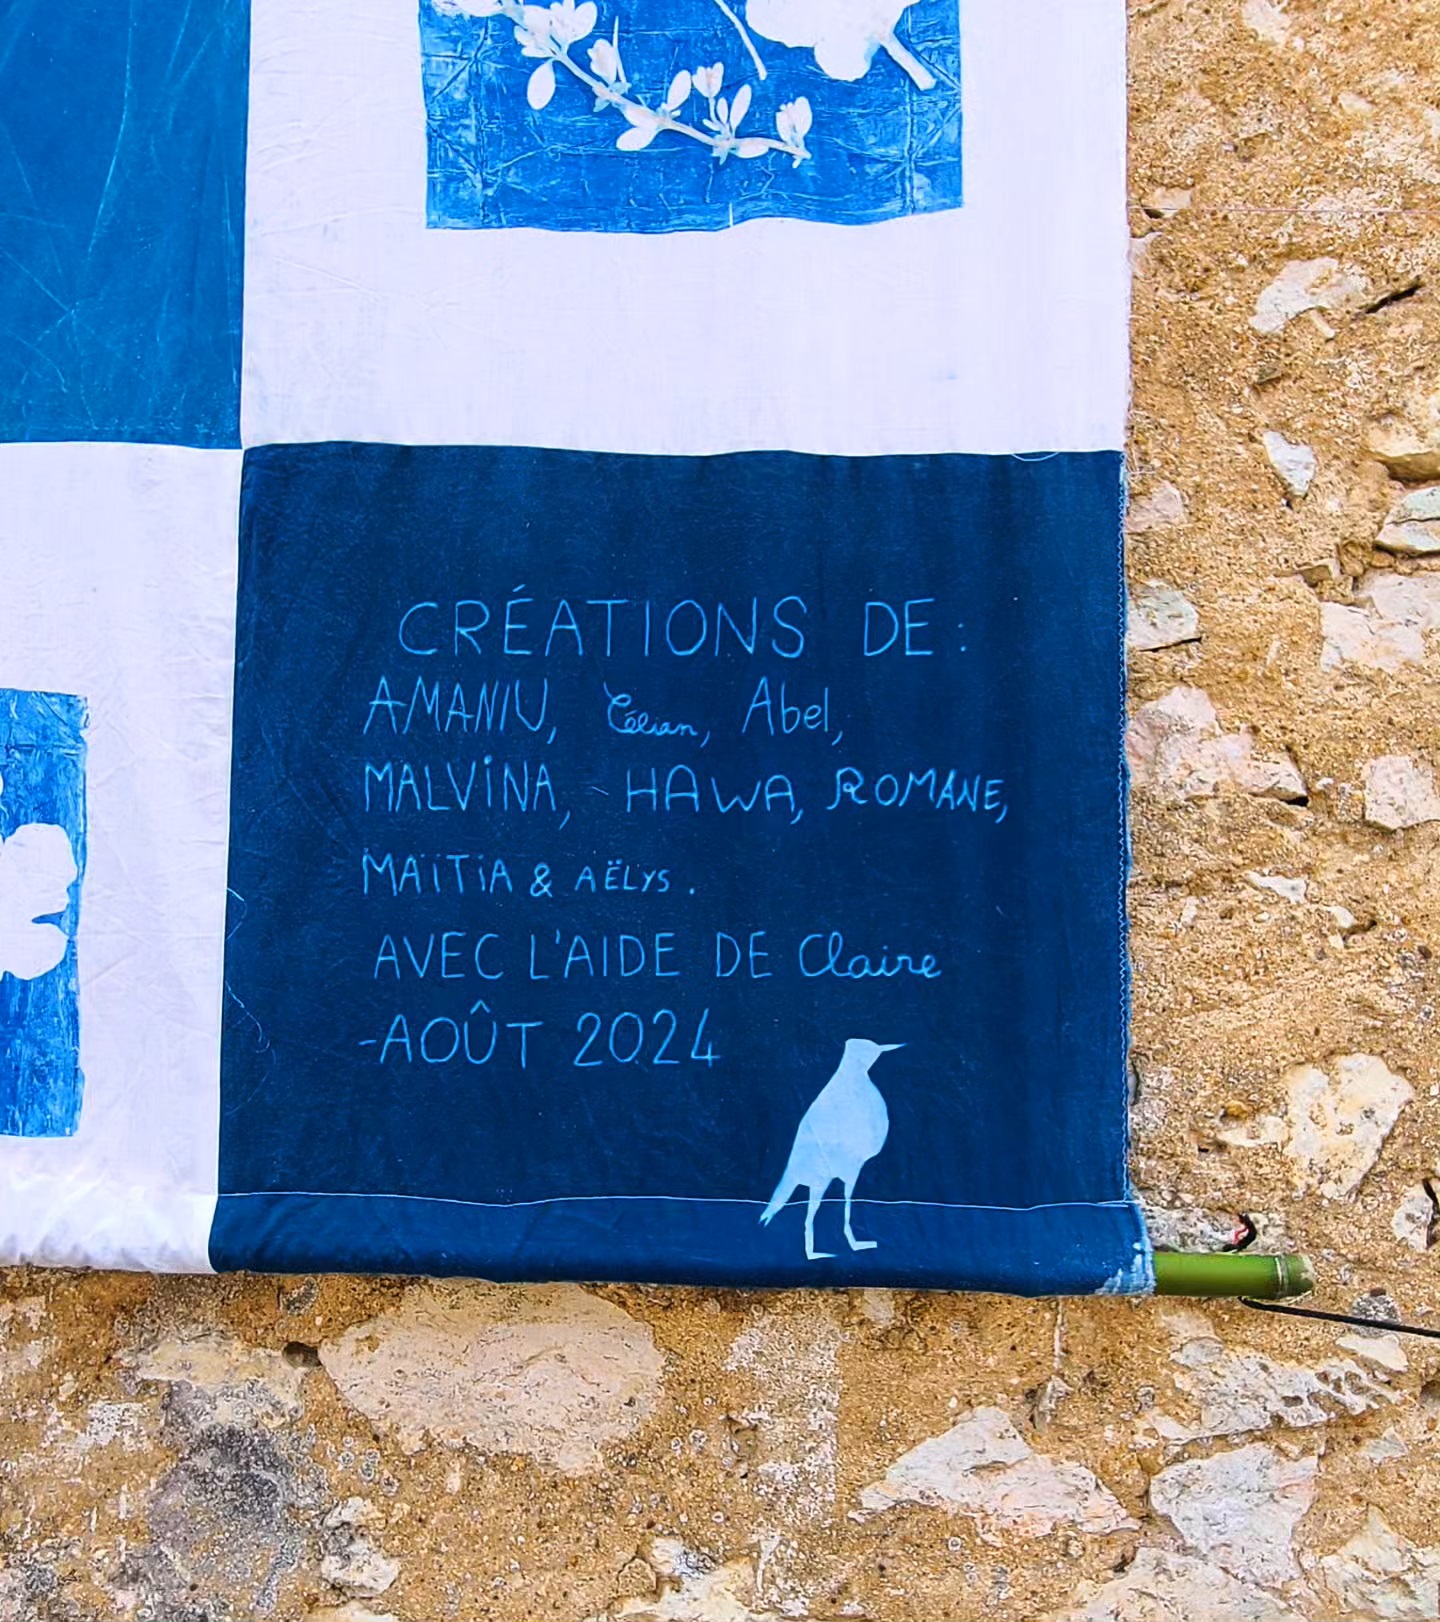 CRÉATIONS DE :
AMANIU, Célian, Abel,
MALViNA, HAWA, ROMANE,
MAïTiA & AËLYS.
AVEC L'AIDE DE Claire
-AOÛT 2024